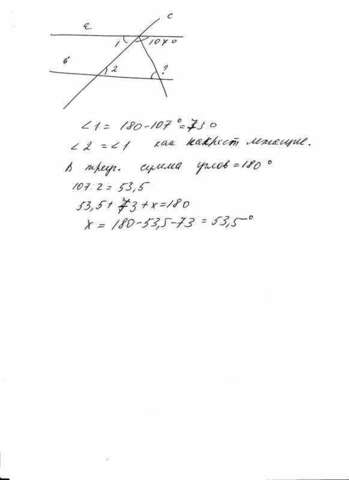 a
c
1
107°
в
2
?
∠1 = 180-107° = 73°
∠2 = ∠1 как накрест лежащие.
В треуг. сумма углов = 180°
107:2 = 53,5
53,5 + 73 + x = 180
x = 180 - 53,5 - 73 = 53,5°